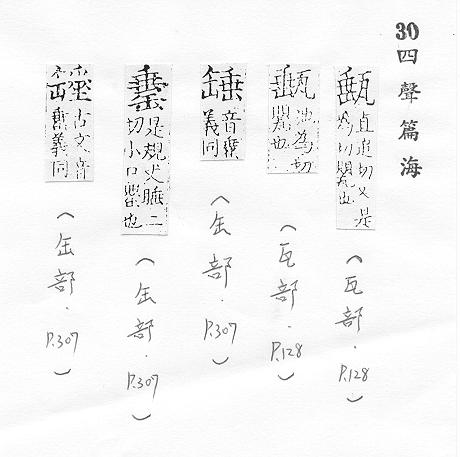 30 四聲篇海
甀 直追切又是
為切甖也
（瓦部．P.128）
為切
甖也
（瓦部．P.128）
音
義同
（缶部．P.307）
是規丈睡二
切小口甖也
（缶部．P.307）
古文音
義同
（缶部．P.307）